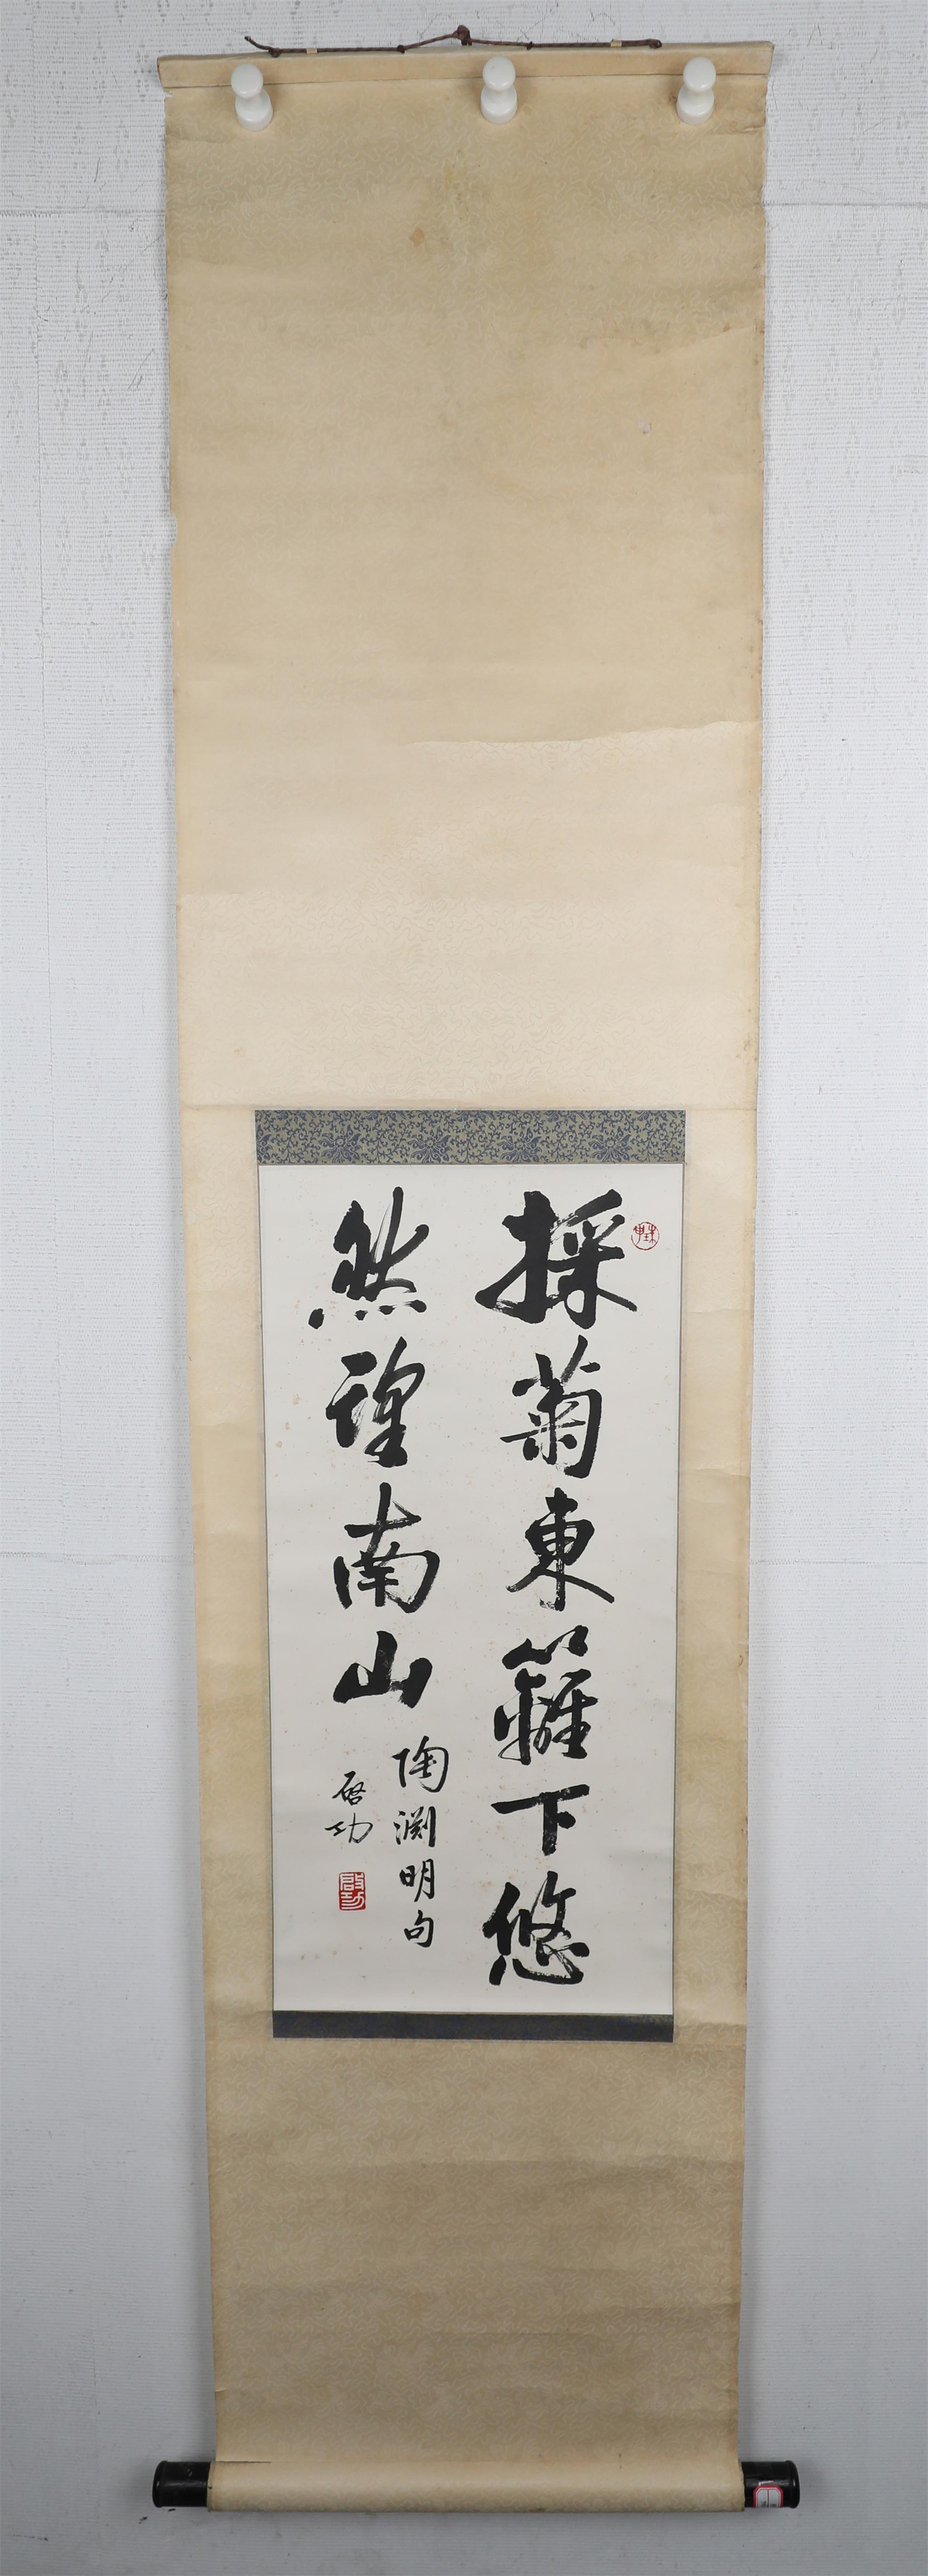 採菊東籬下悠
然望南山
陶淵明句
啓功
啟功